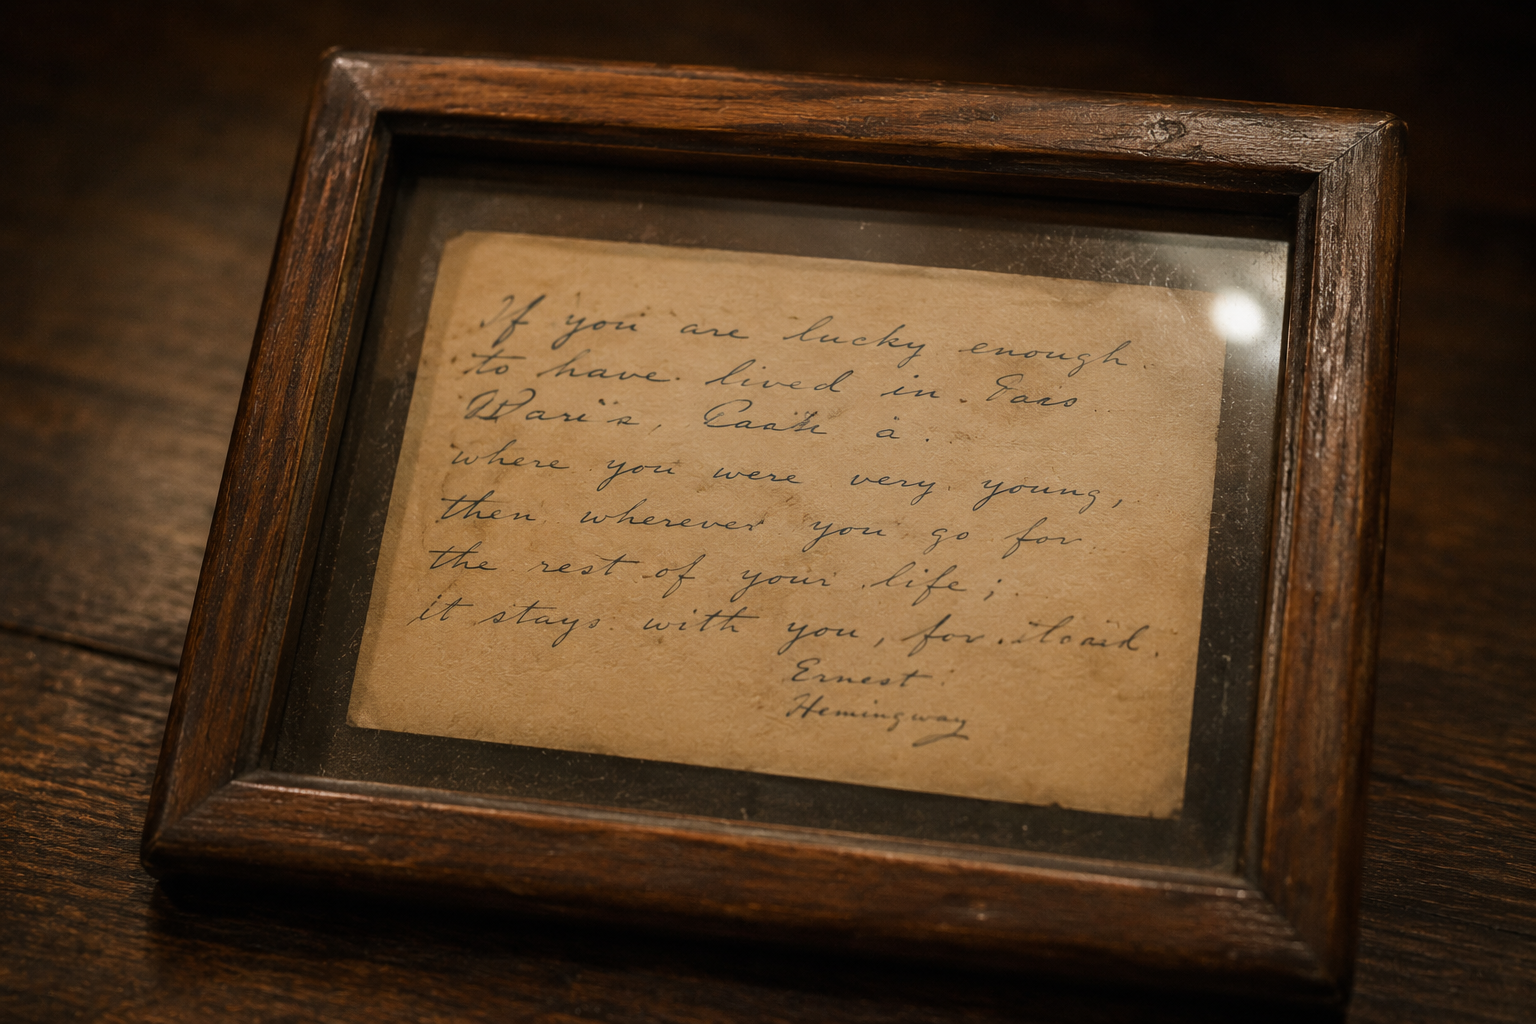 If you are lucky enough
to have lived in
a
where you were very young,
then wherever you go for
the rest of your life;
it stays with you, for
Ernest
Hemingway